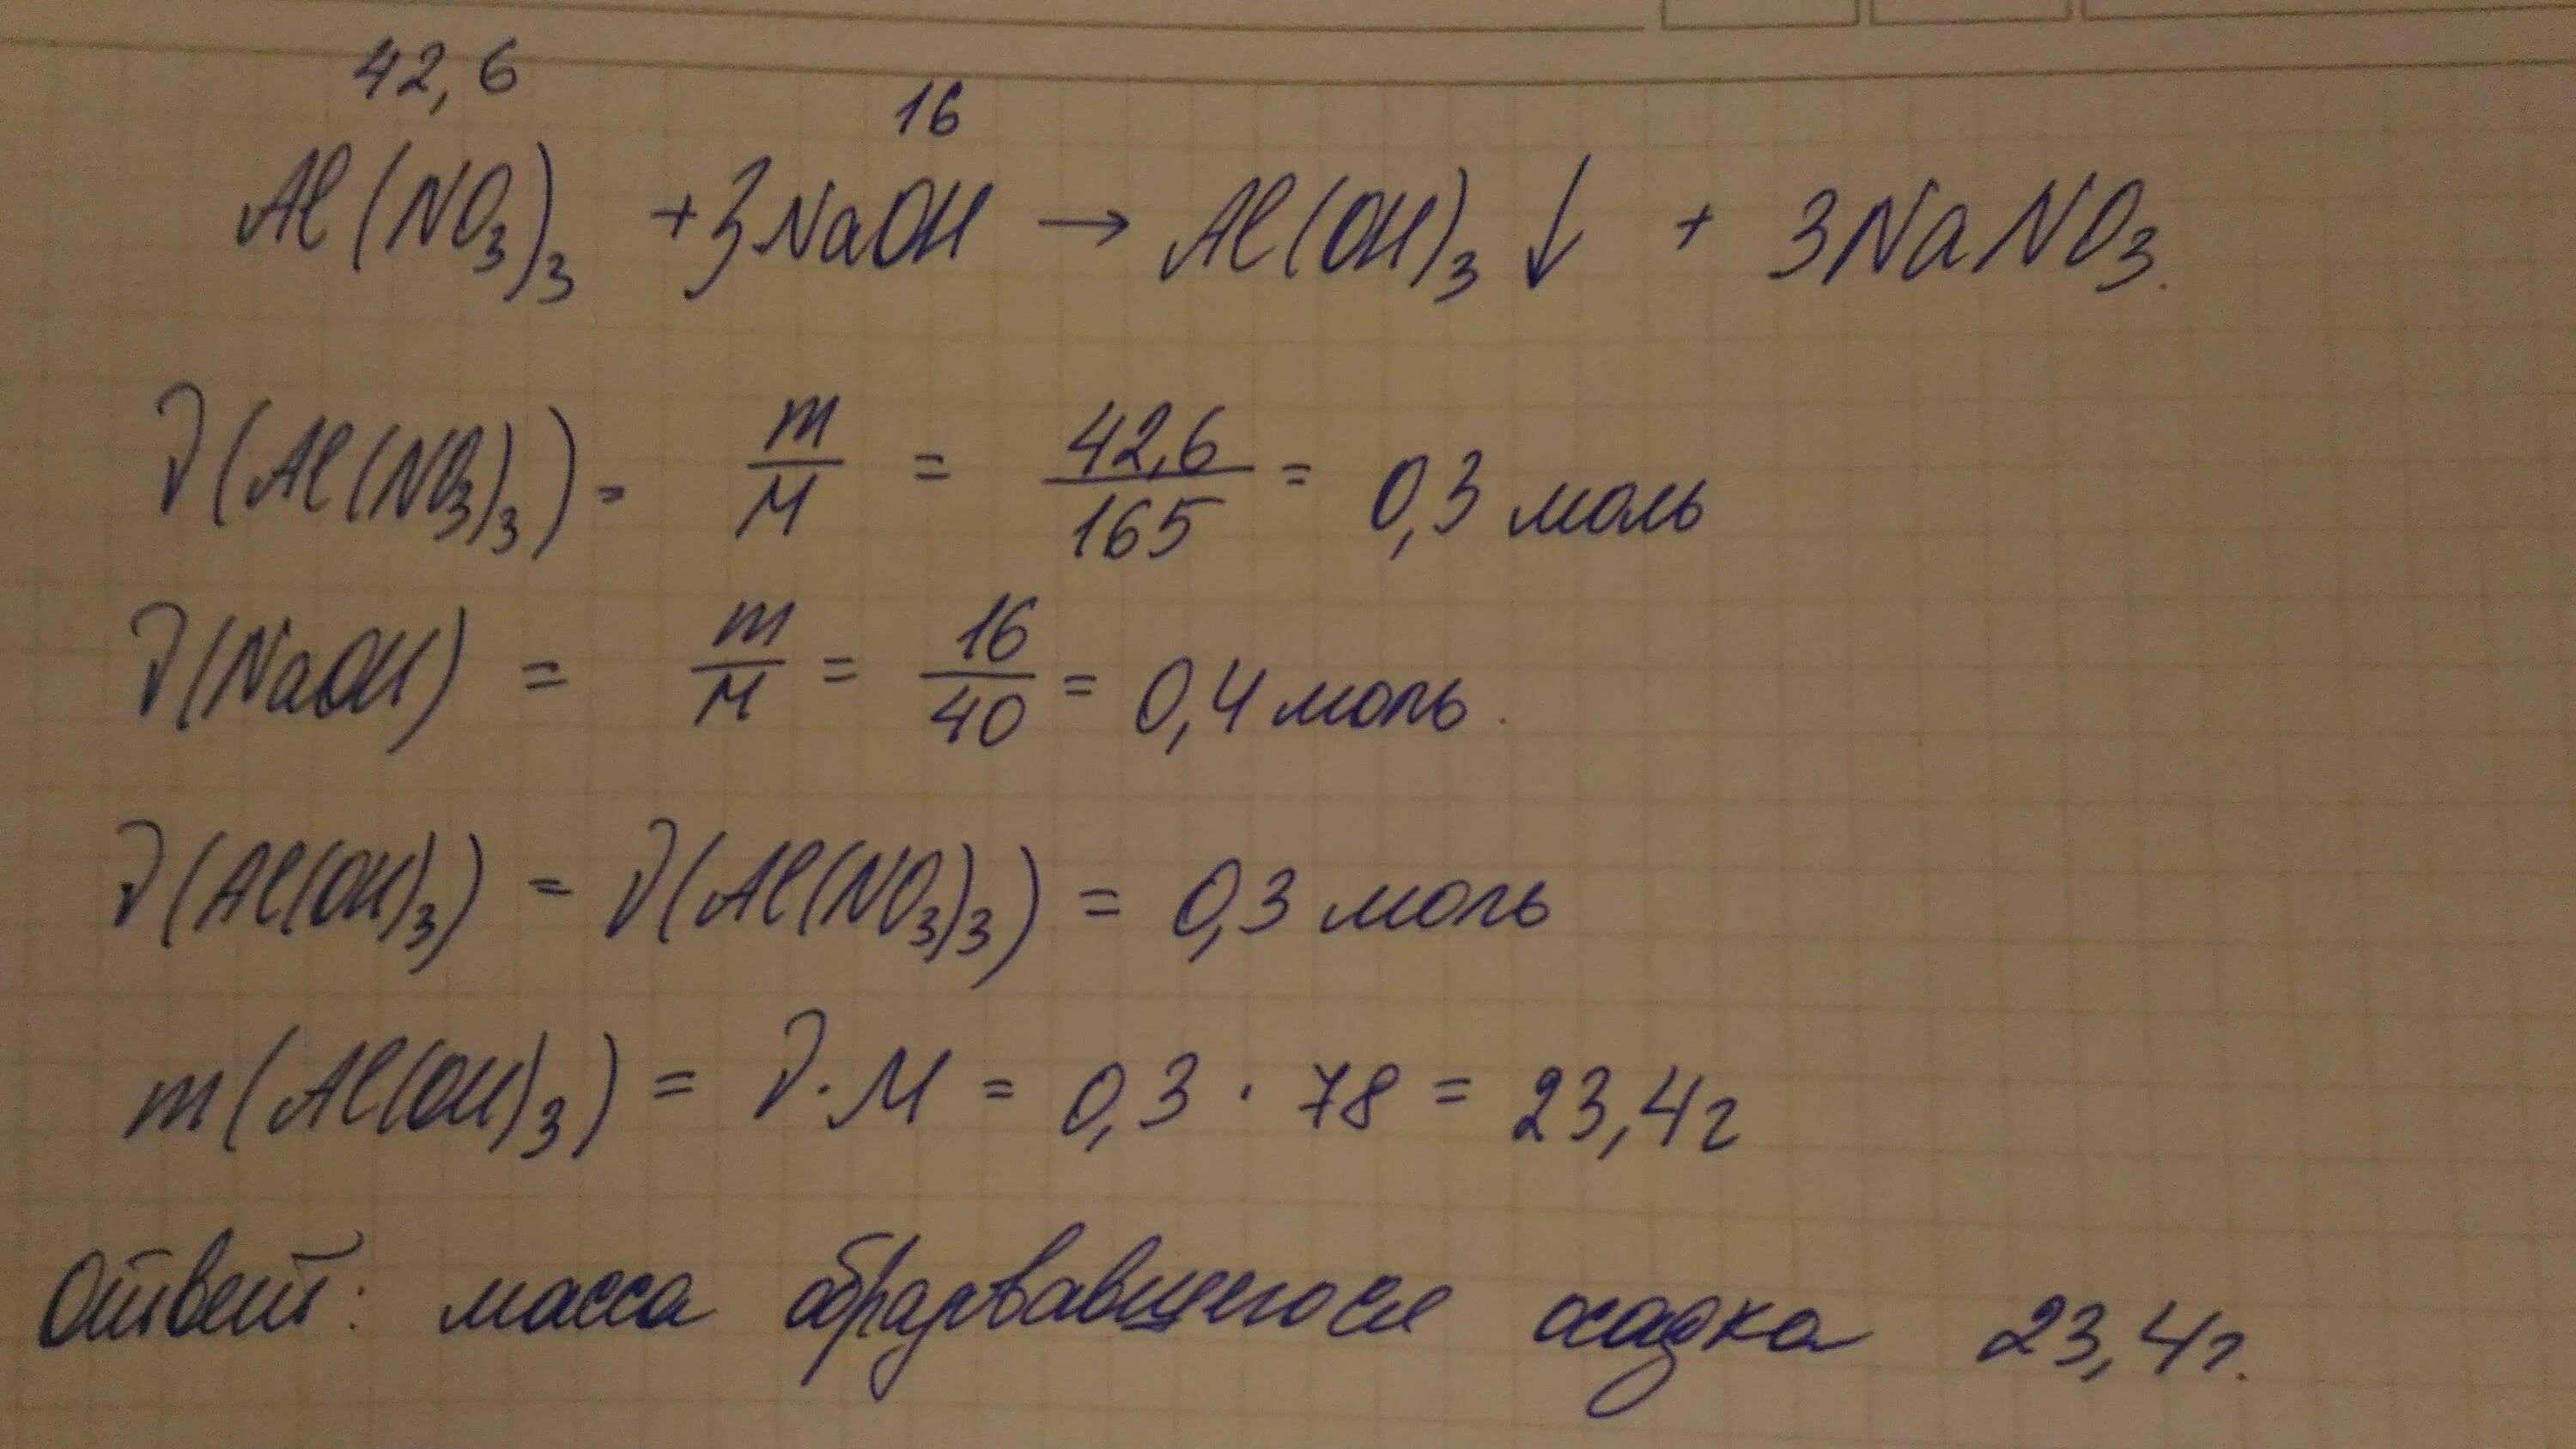 42,6
16
Al(NO₃)₃ +3NaOH → Al(OH)₃↓ + 3NaNO₃.
ν(Al(NO₃)₃) = m/M = 42,6/165 = 0,3 моль
ν(NaOH) = m/M = 16/40 = 0,4 моль.
ν(Al(OH)₃) = ν(Al(NO₃)₃) = 0,3 моль
m(Al(OH)₃) = ν·M = 0,3 · 78 = 23,4г
Ответ: масса образовавшегося осадка 23,4г.